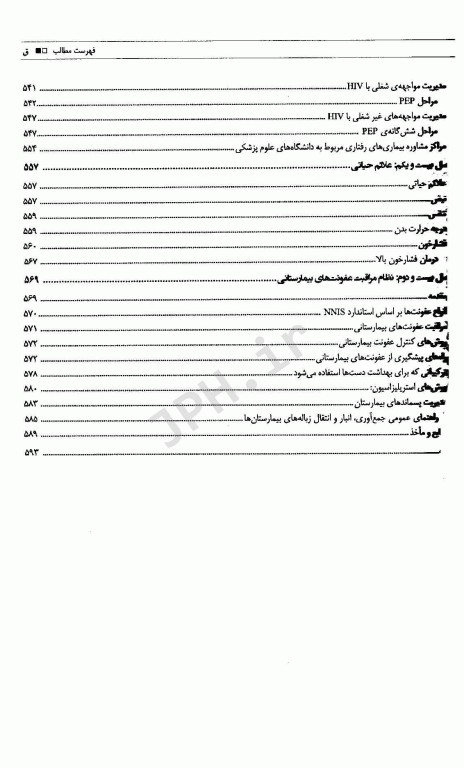 فهرست مطالب □■ ق
مدیریت مواجهه‌ی شغلی با HIV ۵۴۱
مراحل PEP ۵۴۲
مدیریت مواجهه‌های غیر شغلی با HIV ۵۴۷
مراحل شش‌گانه‌ی PEP ۵۴۷
مراکز مشاوره بیماری‌های رفتاری مربوط به دانشگاه‌های علوم پزشکی ۵۵۴
بیست و یکم: علائم حیاتی ۵۵۷
علائم حیاتی ۵۵۷
نبض ۵۵۷
تنفس ۵۵۹
درجه حرارت بدن ۵۵۹
فشارخون ۵۶۰
درمان فشارخون بالا ۵۶۷
بیست و دوم: نظام مراقبت عفونت‌های بیمارستانی ۵۶۹
مقدمه ۵۶۹
انواع عفونت‌ها بر اساس استاندارد NNIS ۵۷۰
مراقبت عفونت‌های بیمارستانی ۵۷۱
روش‌های کنترل عفونت بیمارستانی ۵۷۲
پیشگیری از عفونت‌های بیمارستانی ۵۷۲
ترکیباتی که برای بهداشت دست‌ها استفاده می‌شود ۵۷۸
روش‌های استریلیزاسیون: ۵۸۰
مدیریت پسماندهای بیمارستان ۵۸۳
راهنمای عمومی جمع‌آوری، انبار و انتقال زباله‌های بیمارستان‌ها ۵۸۵
و مآخذ ۵۸۹
۵۹۳
JPH.ir